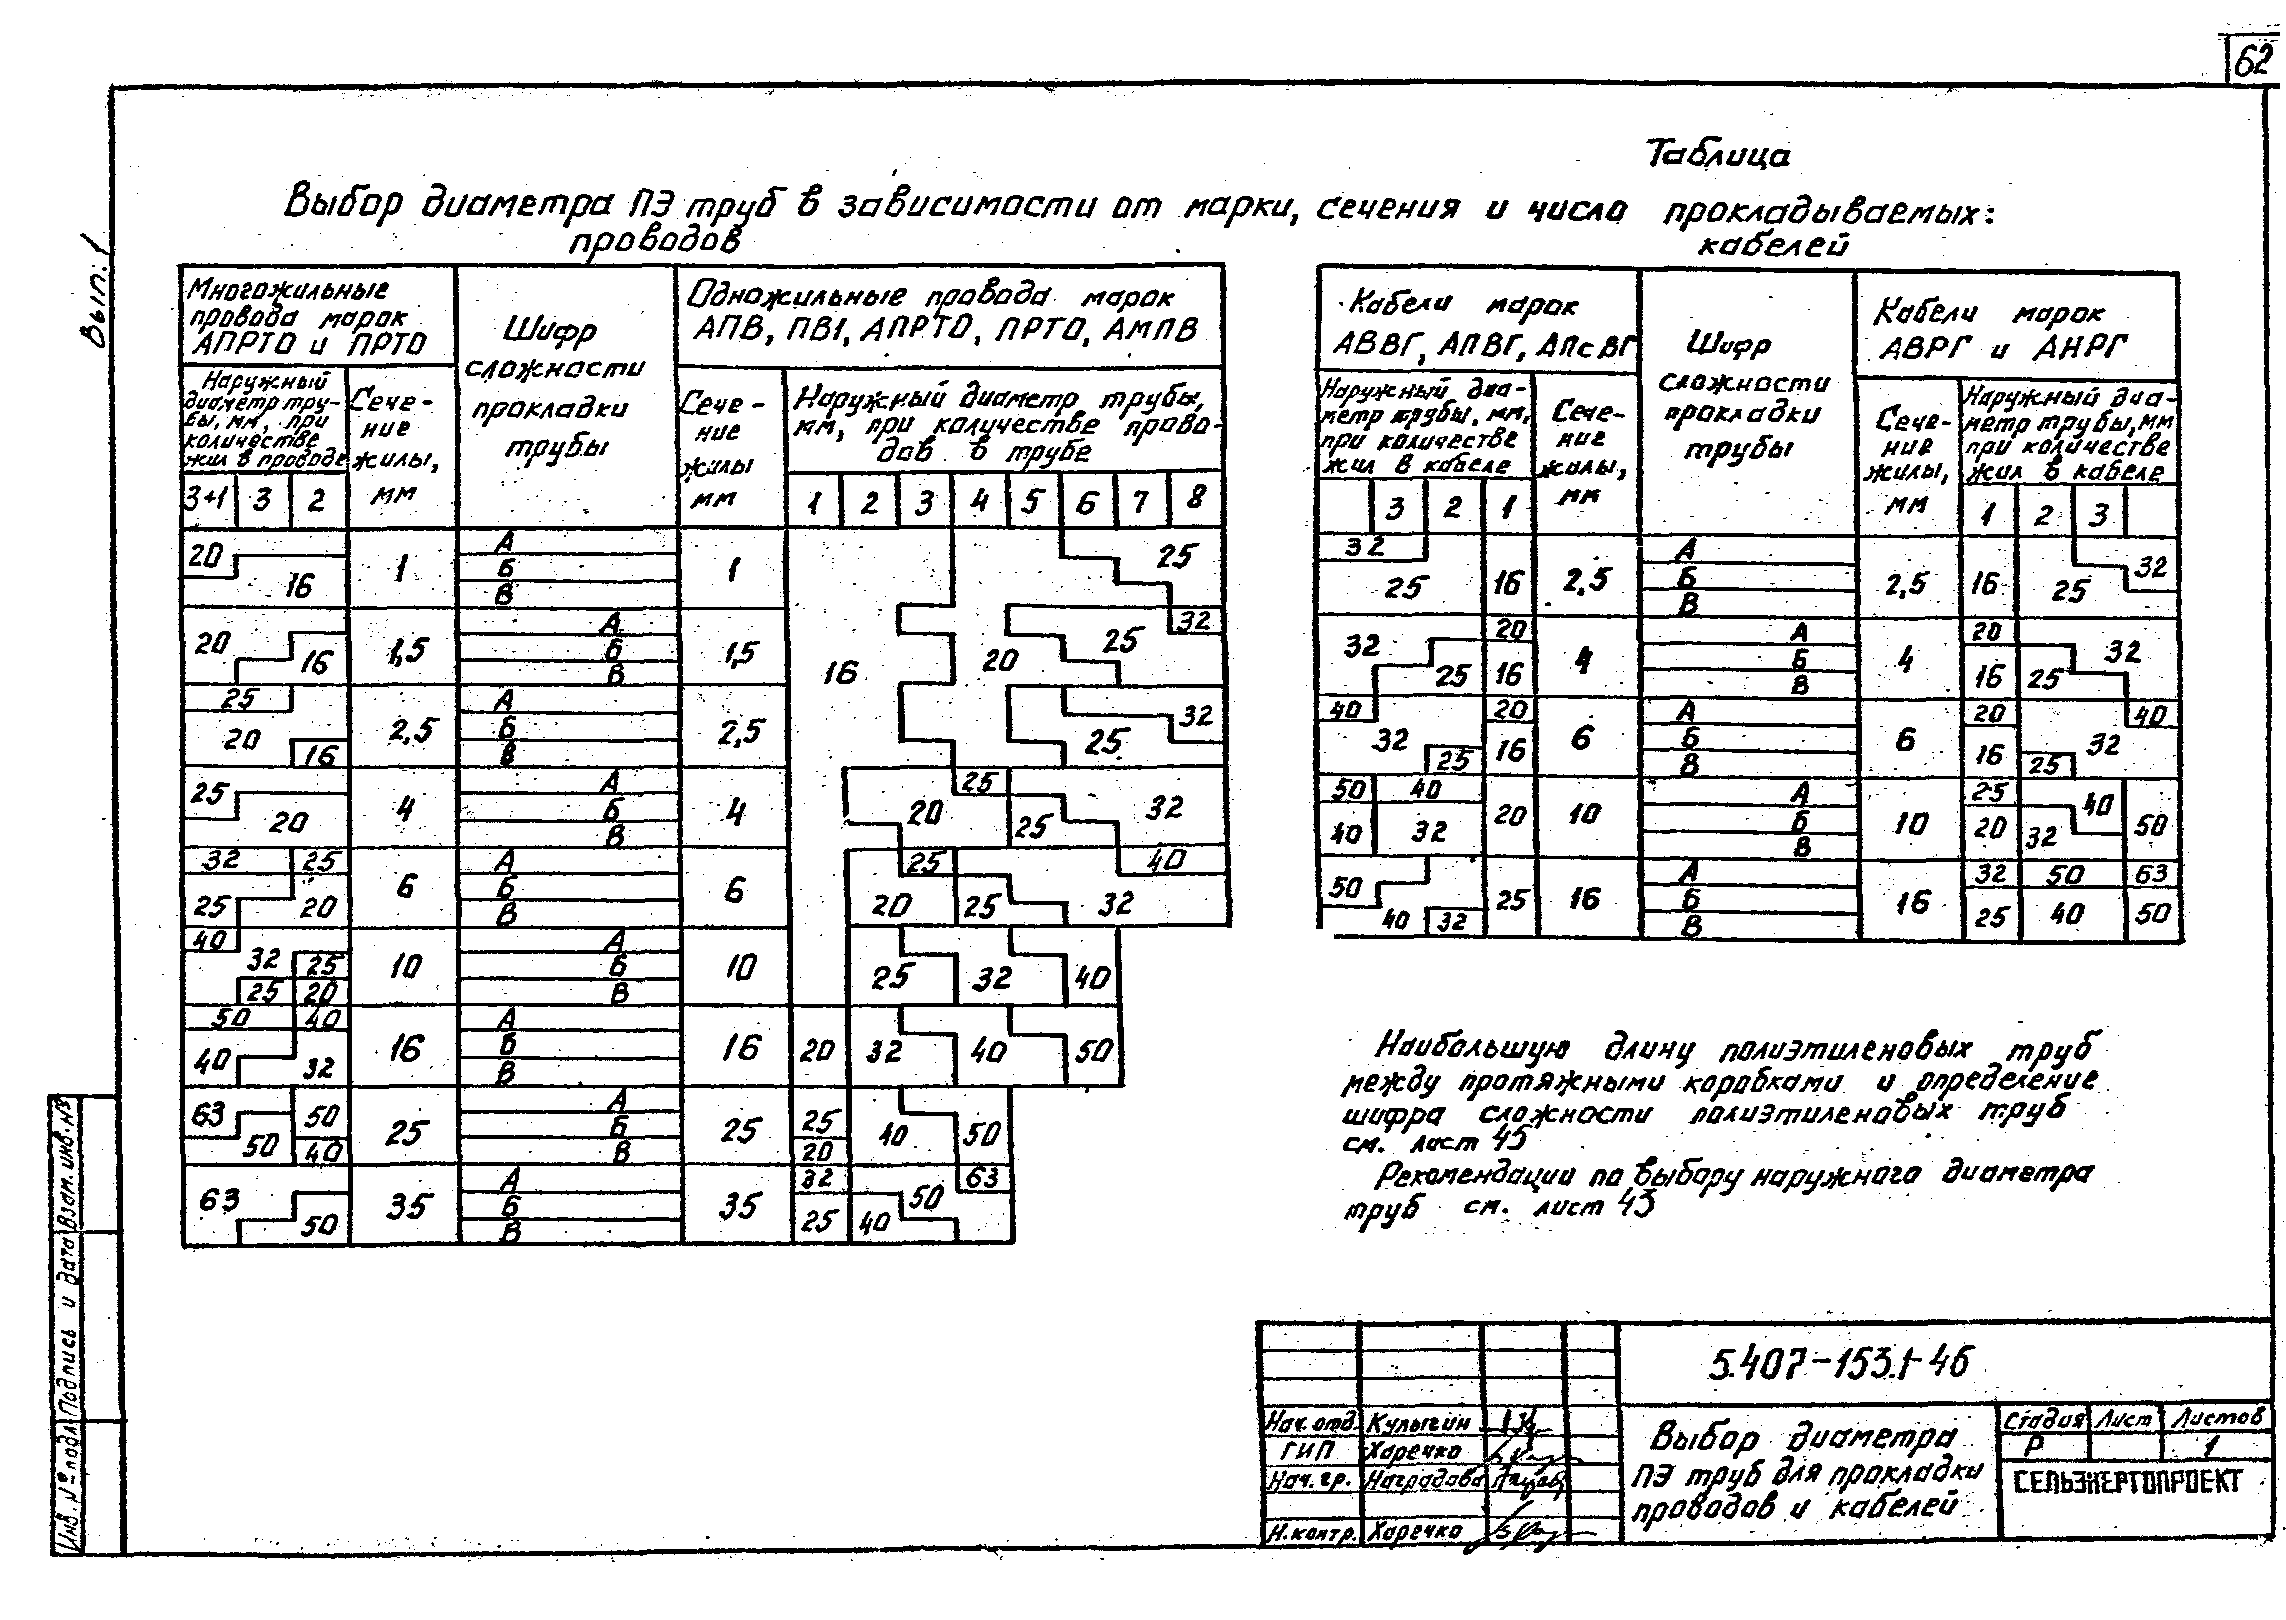 62
Вып. 1
Таблица
Выбор диаметра ПЭ труб в зависимости от марки, сечения и числа прокладываемых:
проводов
кабелей
Многожильные
провода марок
АПРТО и ПРТО
Шифр
сложности
прокладки
трубы
Одножильные провода марок
АПВ, ПВ1, АПРТО, ПРТО, АМПВ
Наружный
диаметр тру-
бы, мм, при
количестве
жил в проводе
Сече-
ние
жилы,
мм
Сече-
ние
жилы
мм
Наружный диаметр трубы,
мм, при количестве прово-
дов в трубе
3+1 3 2
1 2 3 4 5 6 7 8
20 16 1 А Б В 1 25
20 16 1,5 А Б В 1,5 16 20 25 32
25 20 16 2,5 А Б В 2,5 25 32
25 20 4 А Б В 4 20 25 25 32
32 25 25 20 6 А Б В 6 20 25 25 32 40
40 32 25 25 20 10 А Б В 10 25 32 40
50 40 40 32 16 А Б В 16 20 32 40 50
63 50 50 40 25 А Б В 25 25 20 40 50
63 50 35 А Б В 35 32 25 40 50 63
Кабели марок
АВВГ, АПВГ, АПсВГ
Шифр
сложности
прокладки
трубы
Кабели марок
АВРГ и АНРГ
Наружный диа-
метр трубы, мм,
при количестве
жил в кабеле
Сече-
ние
жилы,
мм
Сече-
ние
жилы,
мм
Наружный диа-
метр трубы, мм
при количестве
жил в кабеле
3 2 1
1 2 3
32 25 16 2,5 А Б В 2,5 16 25 32
32 25 20 16 4 А Б В 4 20 16 25 32
40 32 25 20 16 6 А Б В 6 20 16 25 32 40
50 40 40 32 20 10 А Б В 10 25 20 32 40 50
50 40 32 25 16 А Б В 16 32 25 50 40 63 50
Наибольшую длину полиэтиленовых труб
между протяжными коробками и определение
шифра сложности полиэтиленовых труб
см. лист 45
Рекомендации по выбору наружного диаметра
труб см. лист 43
5.407-153.1-46
Нач. отд. Кулыгин
ГИП Харечко
Нач. гр. Наградова
Н. контр. Харечко
Выбор диаметра
ПЭ труб для прокладки
проводов и кабелей
Стадия Лист Листов
Р 1
СЕЛЬЭНЕРГОПРОЕКТ
Инв. № подл. Подпись и дата Взам. инв. №